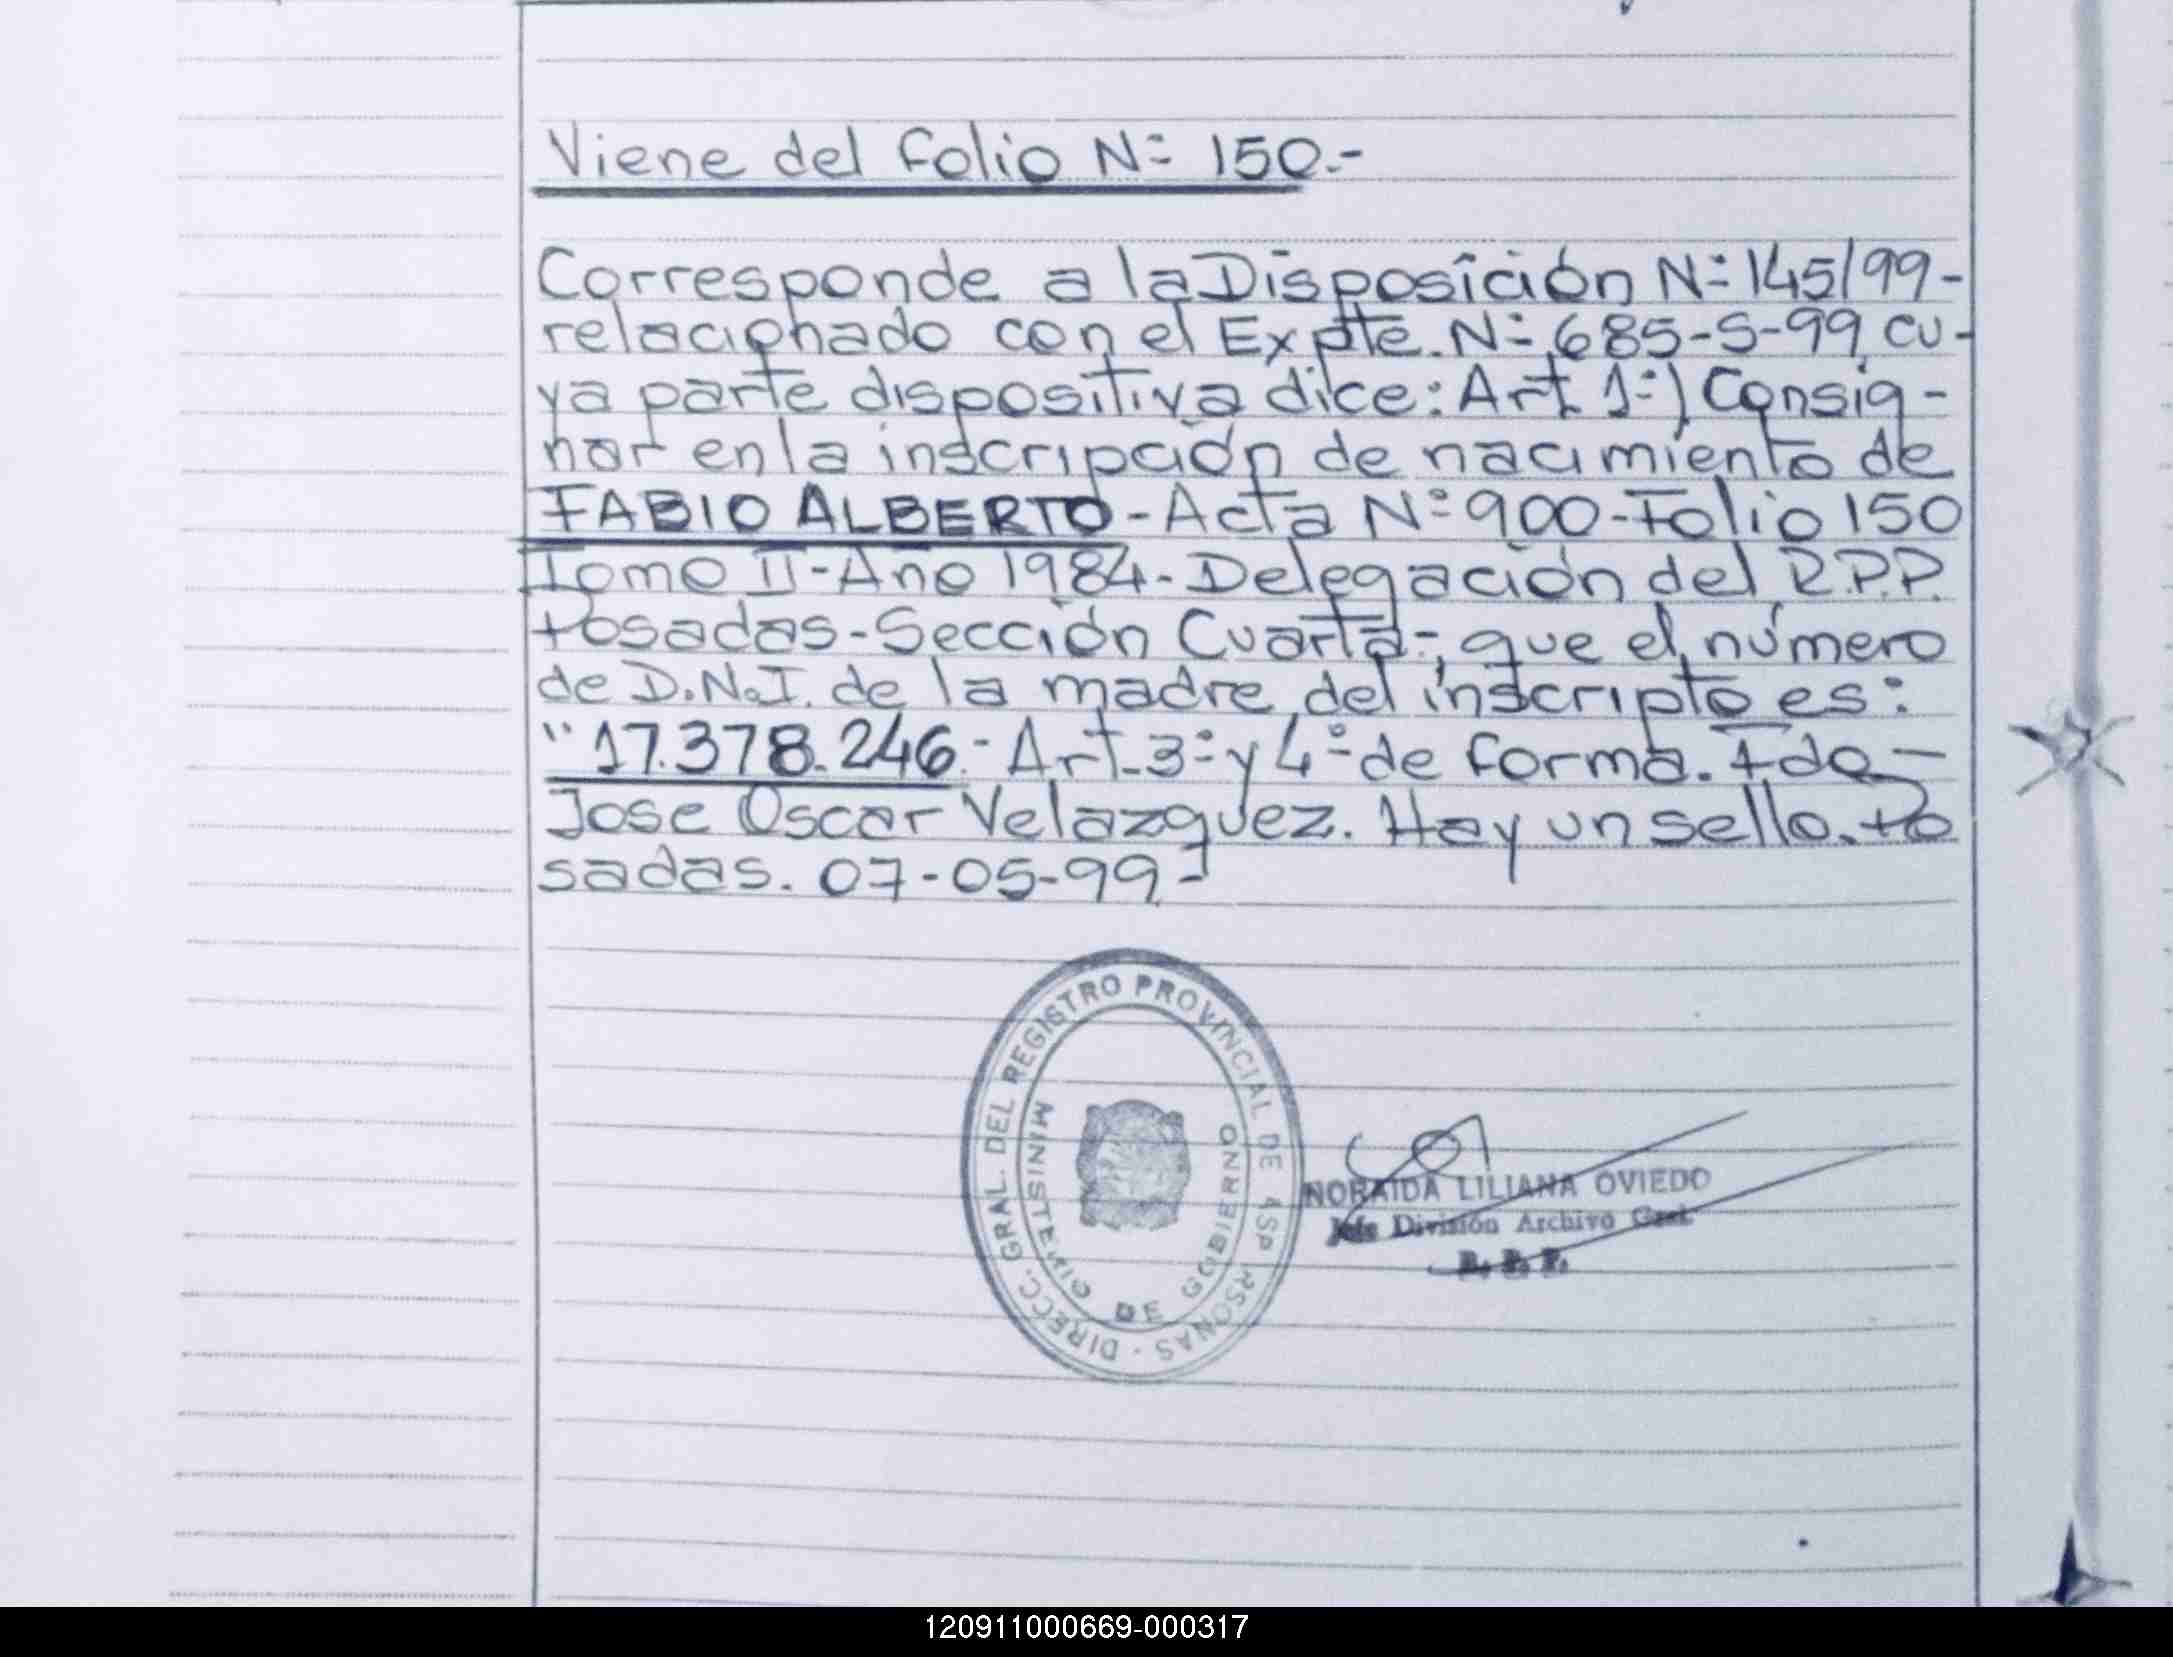 Viene del Folio Nº 150.-
Corresponde a la Disposición Nº 145/99-
relacionado con el Expte. Nº 685-S-99, cu-
ya parte dispositiva dice: Art. 1º) Consig-
nar en la inscripción de nacimiento de
FABIO ALBERTO - Acta Nº 900 - Folio 150
Tomo II - Año 1984 - Delegación del R.P.P.
Posadas - Sección Cuarta -, que el número
de D.N.I. de la madre del inscripto es:
"17.378.246.- Art. 3º y 4º de forma. Fdo -
Jose Oscar Velazquez. Hay un sello. Po
sadas. 07-05-99-
DIRECC. GRAL. DEL REGISTRO PROVINCIAL DE
RSONAS
MINISTERIO DE GOBIERNO
NORAIDA LILIANA OVIEDO
Jefe División Archivo Gral.
R. P. P.
120911000669-000317